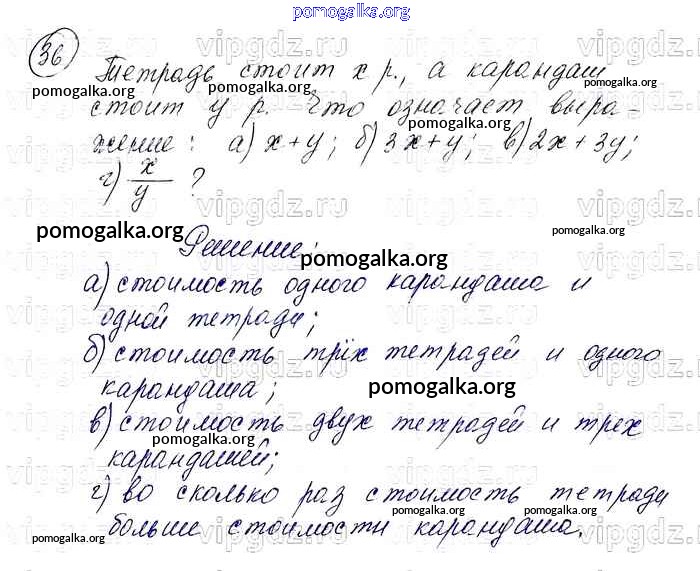 pomogalka.org
36
Тетрадь стоит x р., а карандаш
стоит y р. Что означает выра-
жение: а) x+y; б) 3x+y; в) 2x+3y;
г) x/y ?
Решение:
а) стоимость одного карандаша и
одной тетради;
б) стоимость трёх тетрадей и одного
карандаша;
в) стоимость двух тетрадей и трех
карандашей;
г) во сколько раз стоимость тетради
больше стоимости карандаша.